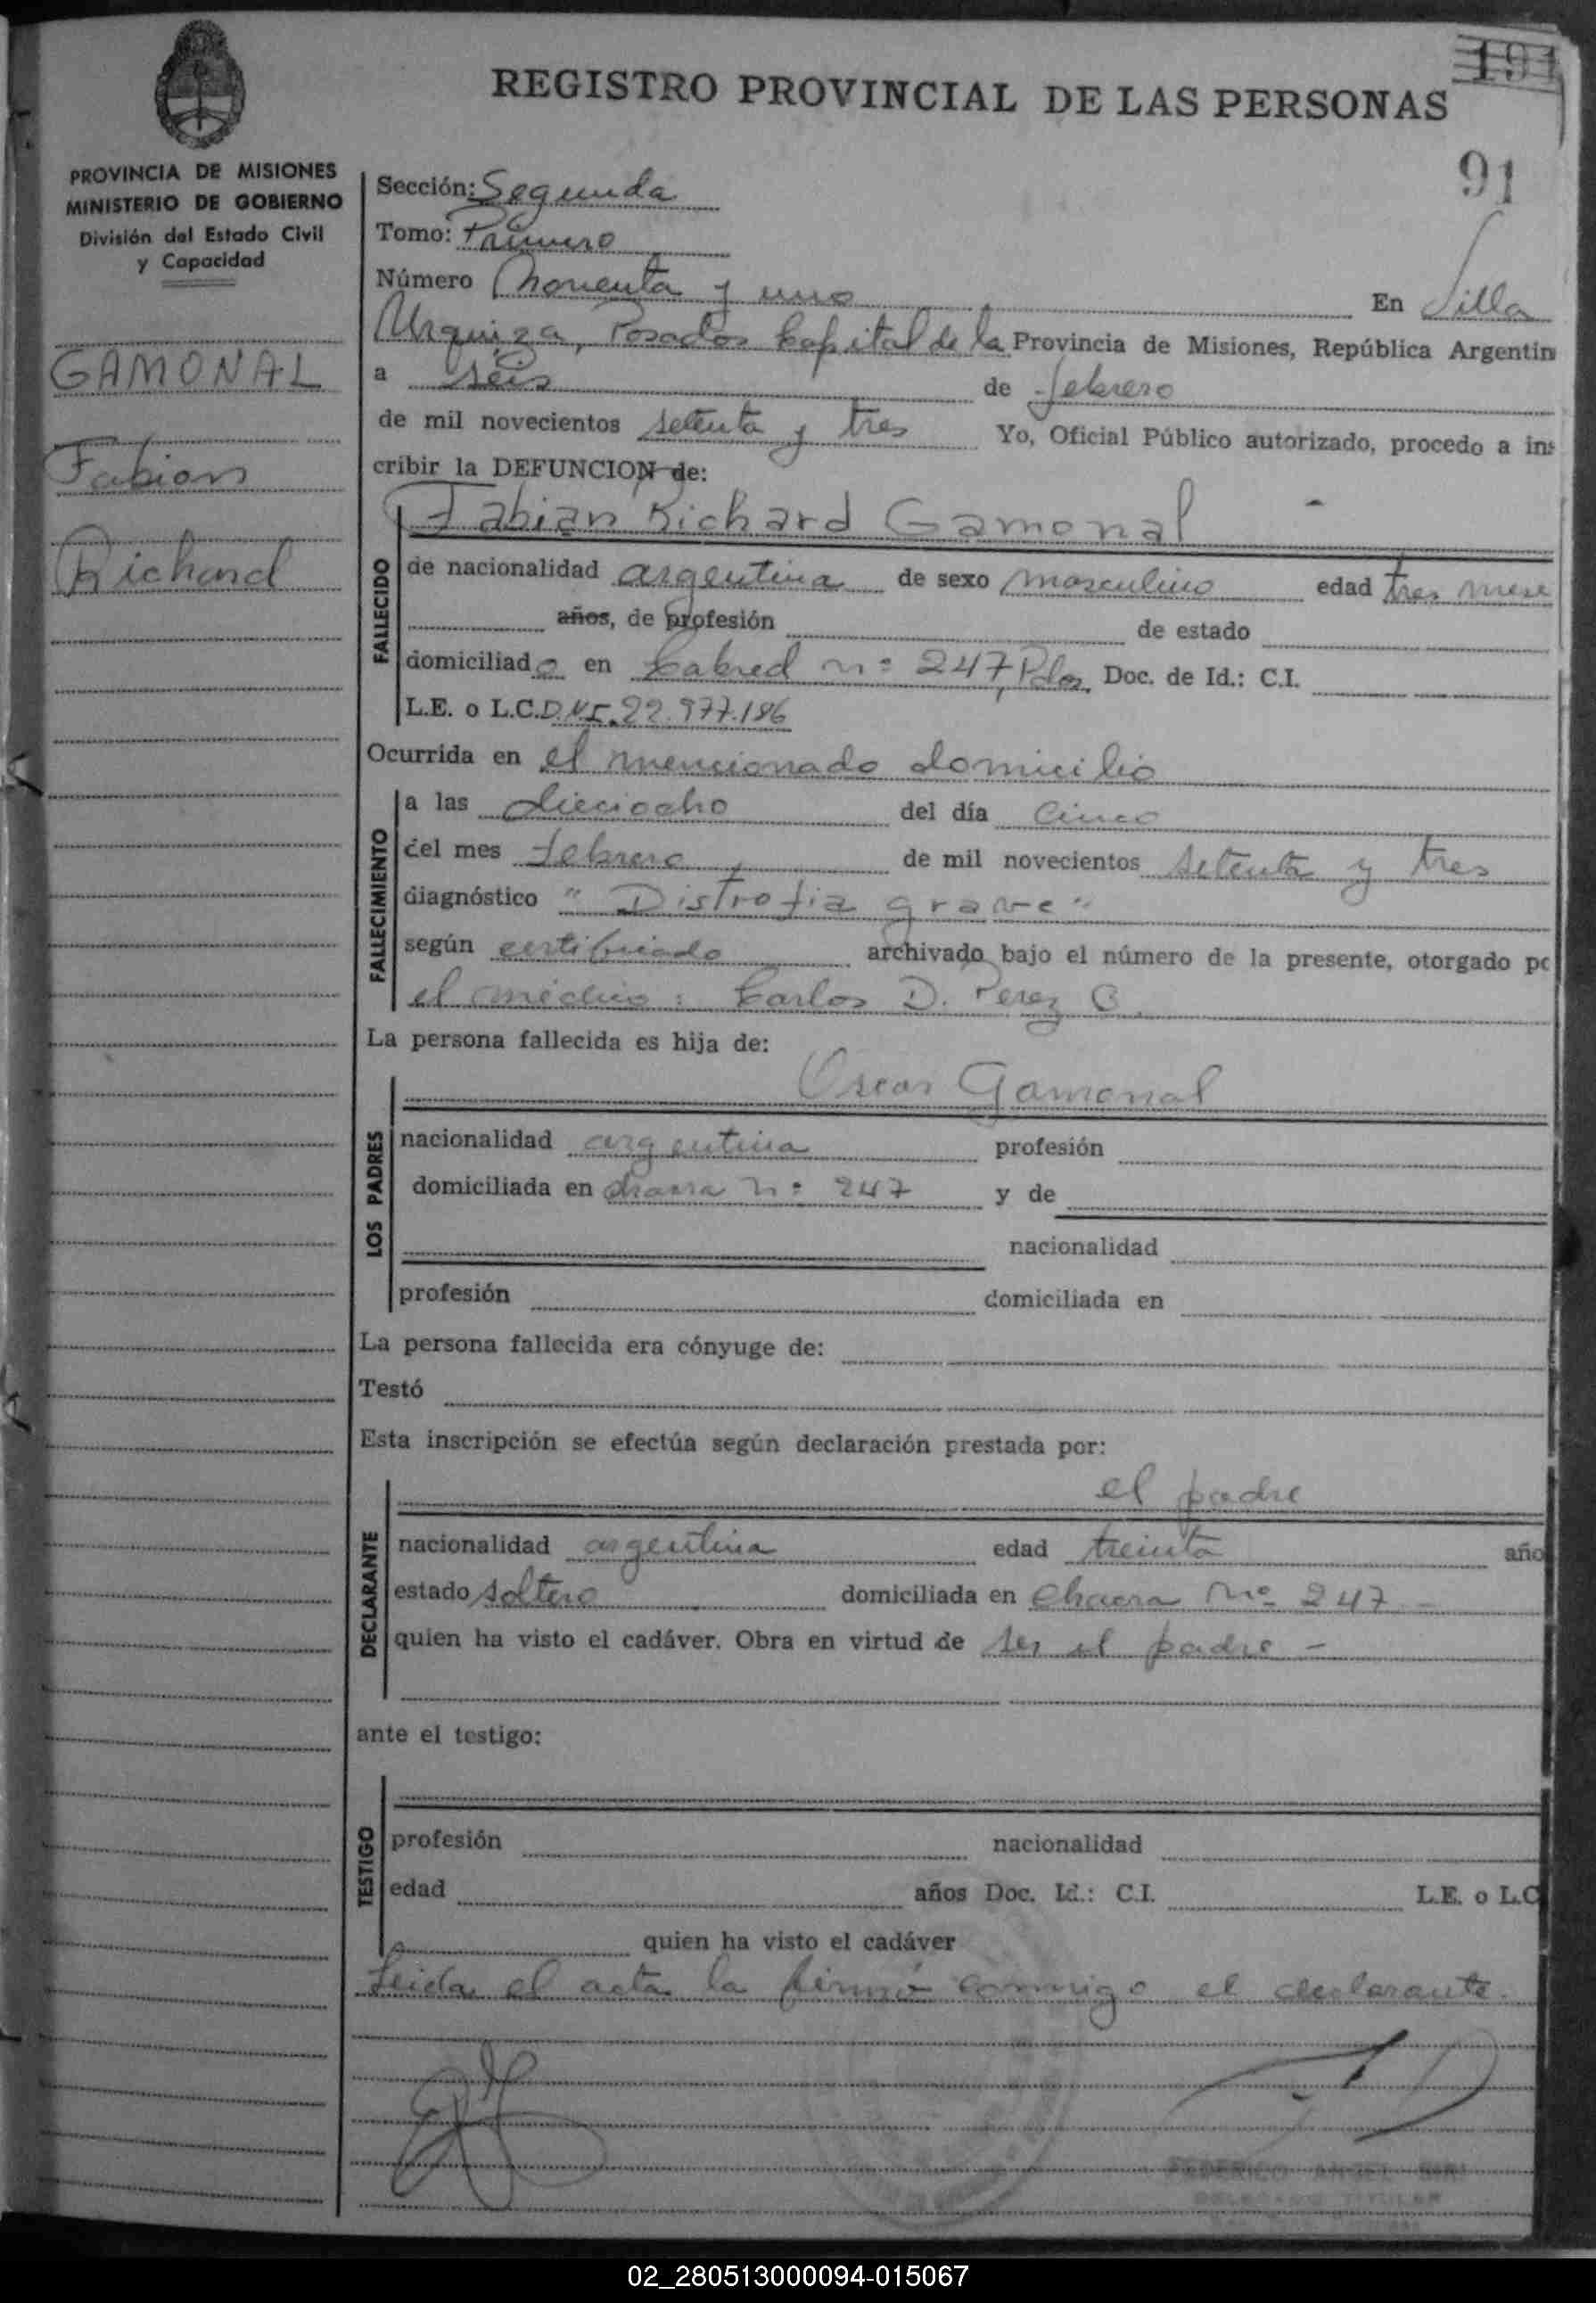 191
REGISTRO PROVINCIAL DE LAS PERSONAS
91
PROVINCIA DE MISIONES
MINISTERIO DE GOBIERNO
División del Estado Civil
y Capacidad
GAMONAL
Fabian
Richard
Sección: Segunda
Tomo: Primero
Número Noventa y uno En Villa
Urquiza, Posadas Capital de la Provincia de Misiones, República Argentin
a seis de febrero
de mil novecientos setenta y tres Yo, Oficial Público autorizado, procedo a ins
cribir la DEFUNCION de:
Fabian Richard Gamonal
FALLECIDO
de nacionalidad argentina de sexo masculino edad tres mese
años, de profesión de estado
domiciliado en Cabred nº 247, Pdas, Doc. de Id.: C.I.
L.E. o L.C. D.N.I. 22.977.186
Ocurrida en el mencionado domicilio
FALLECIMIENTO
a las dieciocho del día cinco
del mes febrero de mil novecientos setenta y tres
diagnóstico "Distrofia grave"
según certificado archivado bajo el número de la presente, otorgado po
el médico: Carlos D. Perez C.
La persona fallecida es hija de:
LOS PADRES
Oscar Gamonal
nacionalidad argentina profesión
domiciliada en chacra nº 247 y de
nacionalidad
profesión domiciliada en
La persona fallecida era cónyuge de:
Testó
Esta inscripción se efectúa según declaración prestada por:
DECLARANTE
el padre
nacionalidad argentina edad treinta año
estado soltero domiciliada en Chacra Nº 247 -
quien ha visto el cadáver. Obra en virtud de ser el padre -
ante el testigo:
TESTIGO
profesión nacionalidad
edad años Doc. Id.: C.I. L.E. o L.C
quien ha visto el cadáver
Leida el acta la firmó conmigo el declarante.
FEDERICO ANGEL
DELEGADO TITULAR
02_280513000094-015067